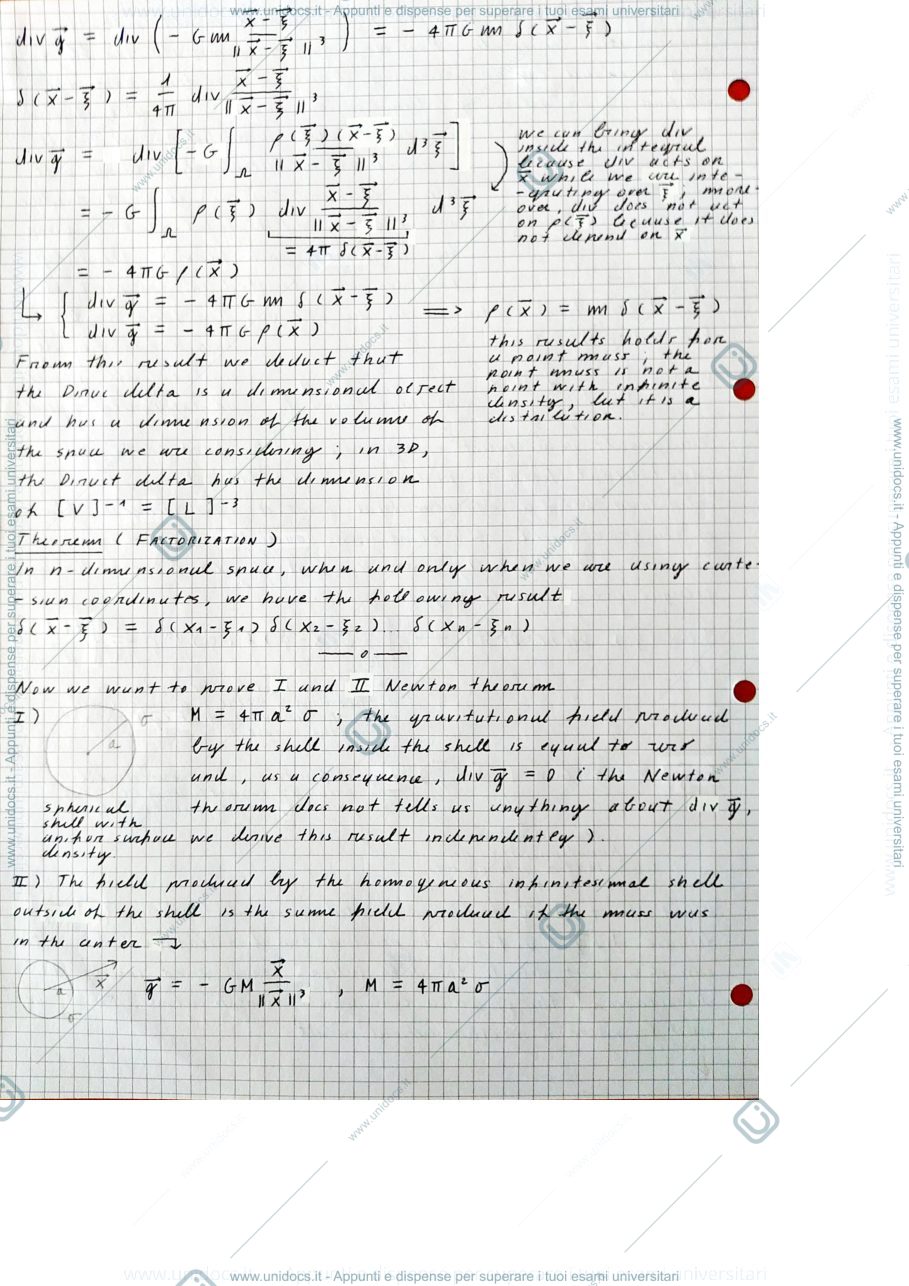 www.unidocs.it - Appunti e dispense per superare i tuoi esami universitari
div g⃗ = div ( - Gm (x⃗ - ξ⃗) / ||x⃗ - ξ⃗||³ ) = - 4πGm δ(x⃗ - ξ⃗)
δ(x⃗ - ξ⃗) = 1/4π div (x⃗ - ξ⃗) / ||x⃗ - ξ⃗||³
div g⃗ = div [ - G ∫_Ω ρ(ξ⃗)(x⃗ - ξ⃗) / ||x⃗ - ξ⃗||³ d³ξ⃗ ]
= - G ∫_Ω ρ(ξ⃗) div (x⃗ - ξ⃗) / ||x⃗ - ξ⃗||³ d³ξ⃗
= 4π δ(x⃗ - ξ⃗)
we can bring div
inside the integral
because div acts on
x⃗ while we are inte-
-grating over ξ⃗ ; more-
over, div does not act
on ρ(ξ⃗) because it does
not depend on x⃗
= - 4πG ρ(x⃗)
div g⃗ = - 4πGm δ(x⃗ - ξ⃗)
div g⃗ = - 4πG ρ(x⃗)
=> ρ(x⃗) = m δ(x⃗ - ξ⃗)
this results holds for
a point mass ; the
point mass is not a
point with infinite
density, but it is a
distribution.
From this result we deduct that
the Dirac delta is a dimensional object
and has a dimension of the volume of
the space we are considering ; in 3D,
the Diract delta has the dimension
of [V]⁻¹ = [L]⁻³
Theorem ( FACTORIZATION )
In n-dimensional space, when and only when we are using carte-
-sian coordinates, we have the following result
δ(x⃗ - ξ⃗) = δ(x₁ - ξ₁) δ(x₂ - ξ₂)... δ(xₙ - ξₙ)
—— o ——
Now we want to prove I and II Newton theorem
I)
a
σ
spherical
shell with
unifor surface
density.
M = 4πa² σ ; the gravitational field produced
by the shell inside the shell is equal to zero
and, as a consequence, div g⃗ = 0 ( the Newton
theorem does not tells us anything about div g⃗,
we derive this result independently ).
II) The field produced by the homogeneous infinitesimal shell
outside of the shell is the same field produced if the mass was
in the center
a
x⃗
σ
g⃗ = - GM x⃗ / ||x⃗||³ , M = 4πa² σ
www.unidocs.it - Appunti e dispense per superare i tuoi esami universitari
www.unidocs.it - Appunti e dispense per superare i tuoi esami universitari
www.unidocs.it - Appunti e dispense per superare i tuoi esami universitari
www.unidocs.it